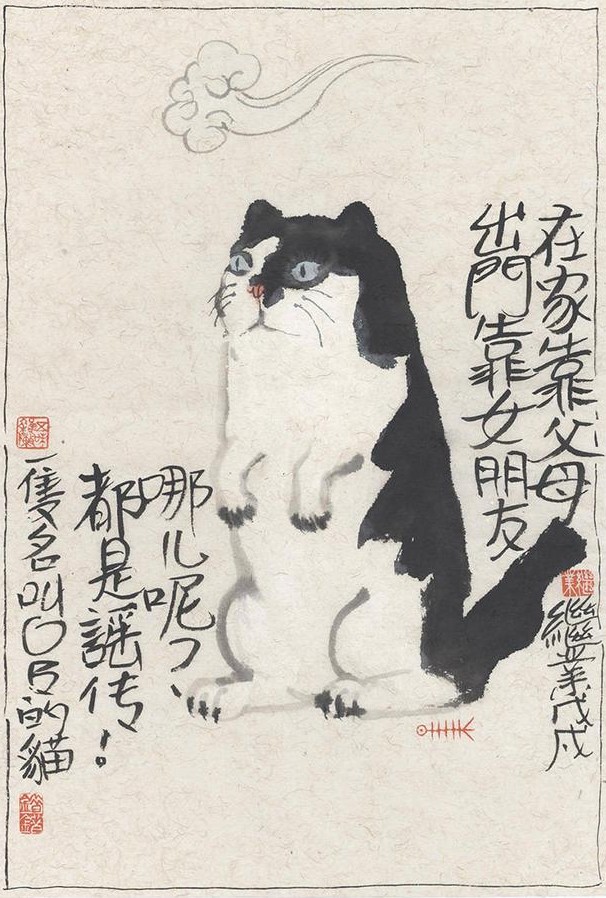 在家靠父母
出門靠女朋友
繼業戊戌
哪儿呢?
都是謡传!
一隻名叫OB的貓